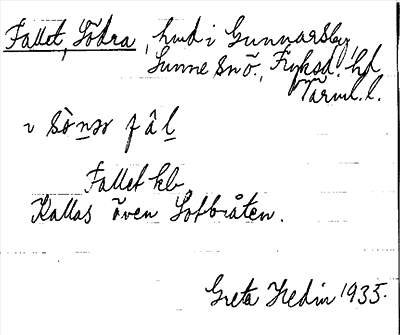 Fallet, Södra, hmd i Gunnarsby,
Sunne snö., Fryksd. hd
Värml. l.
i sönər fâl
Fallet kb
Kallas även Sotbråten.
Greta Hedin 1935.